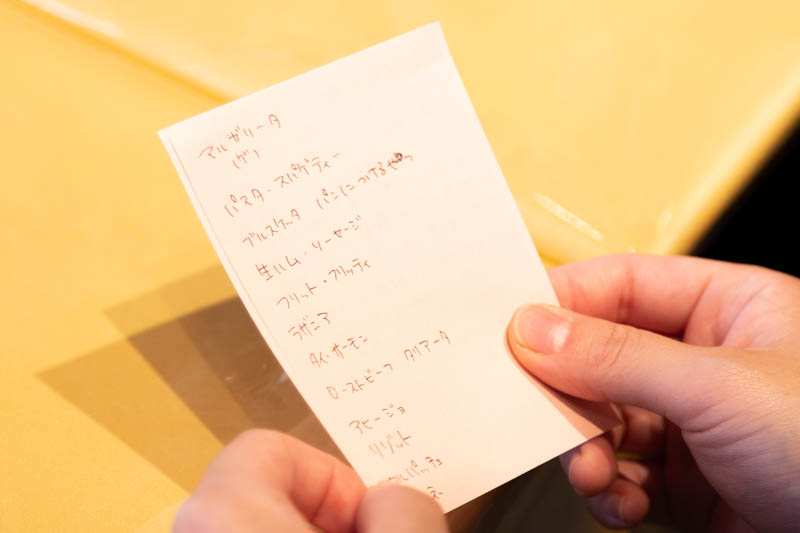 マルガリータ
(ゲ)
パスタ・スパゲティー
ブルスケッタ パンにつけるやつ
生ハム・ソーセージ
フリット・フリッティ
ラザニア
タイ・サーモン
ローストビーフ タリアータ
アヒージョ
リゾット
カルパッチョ